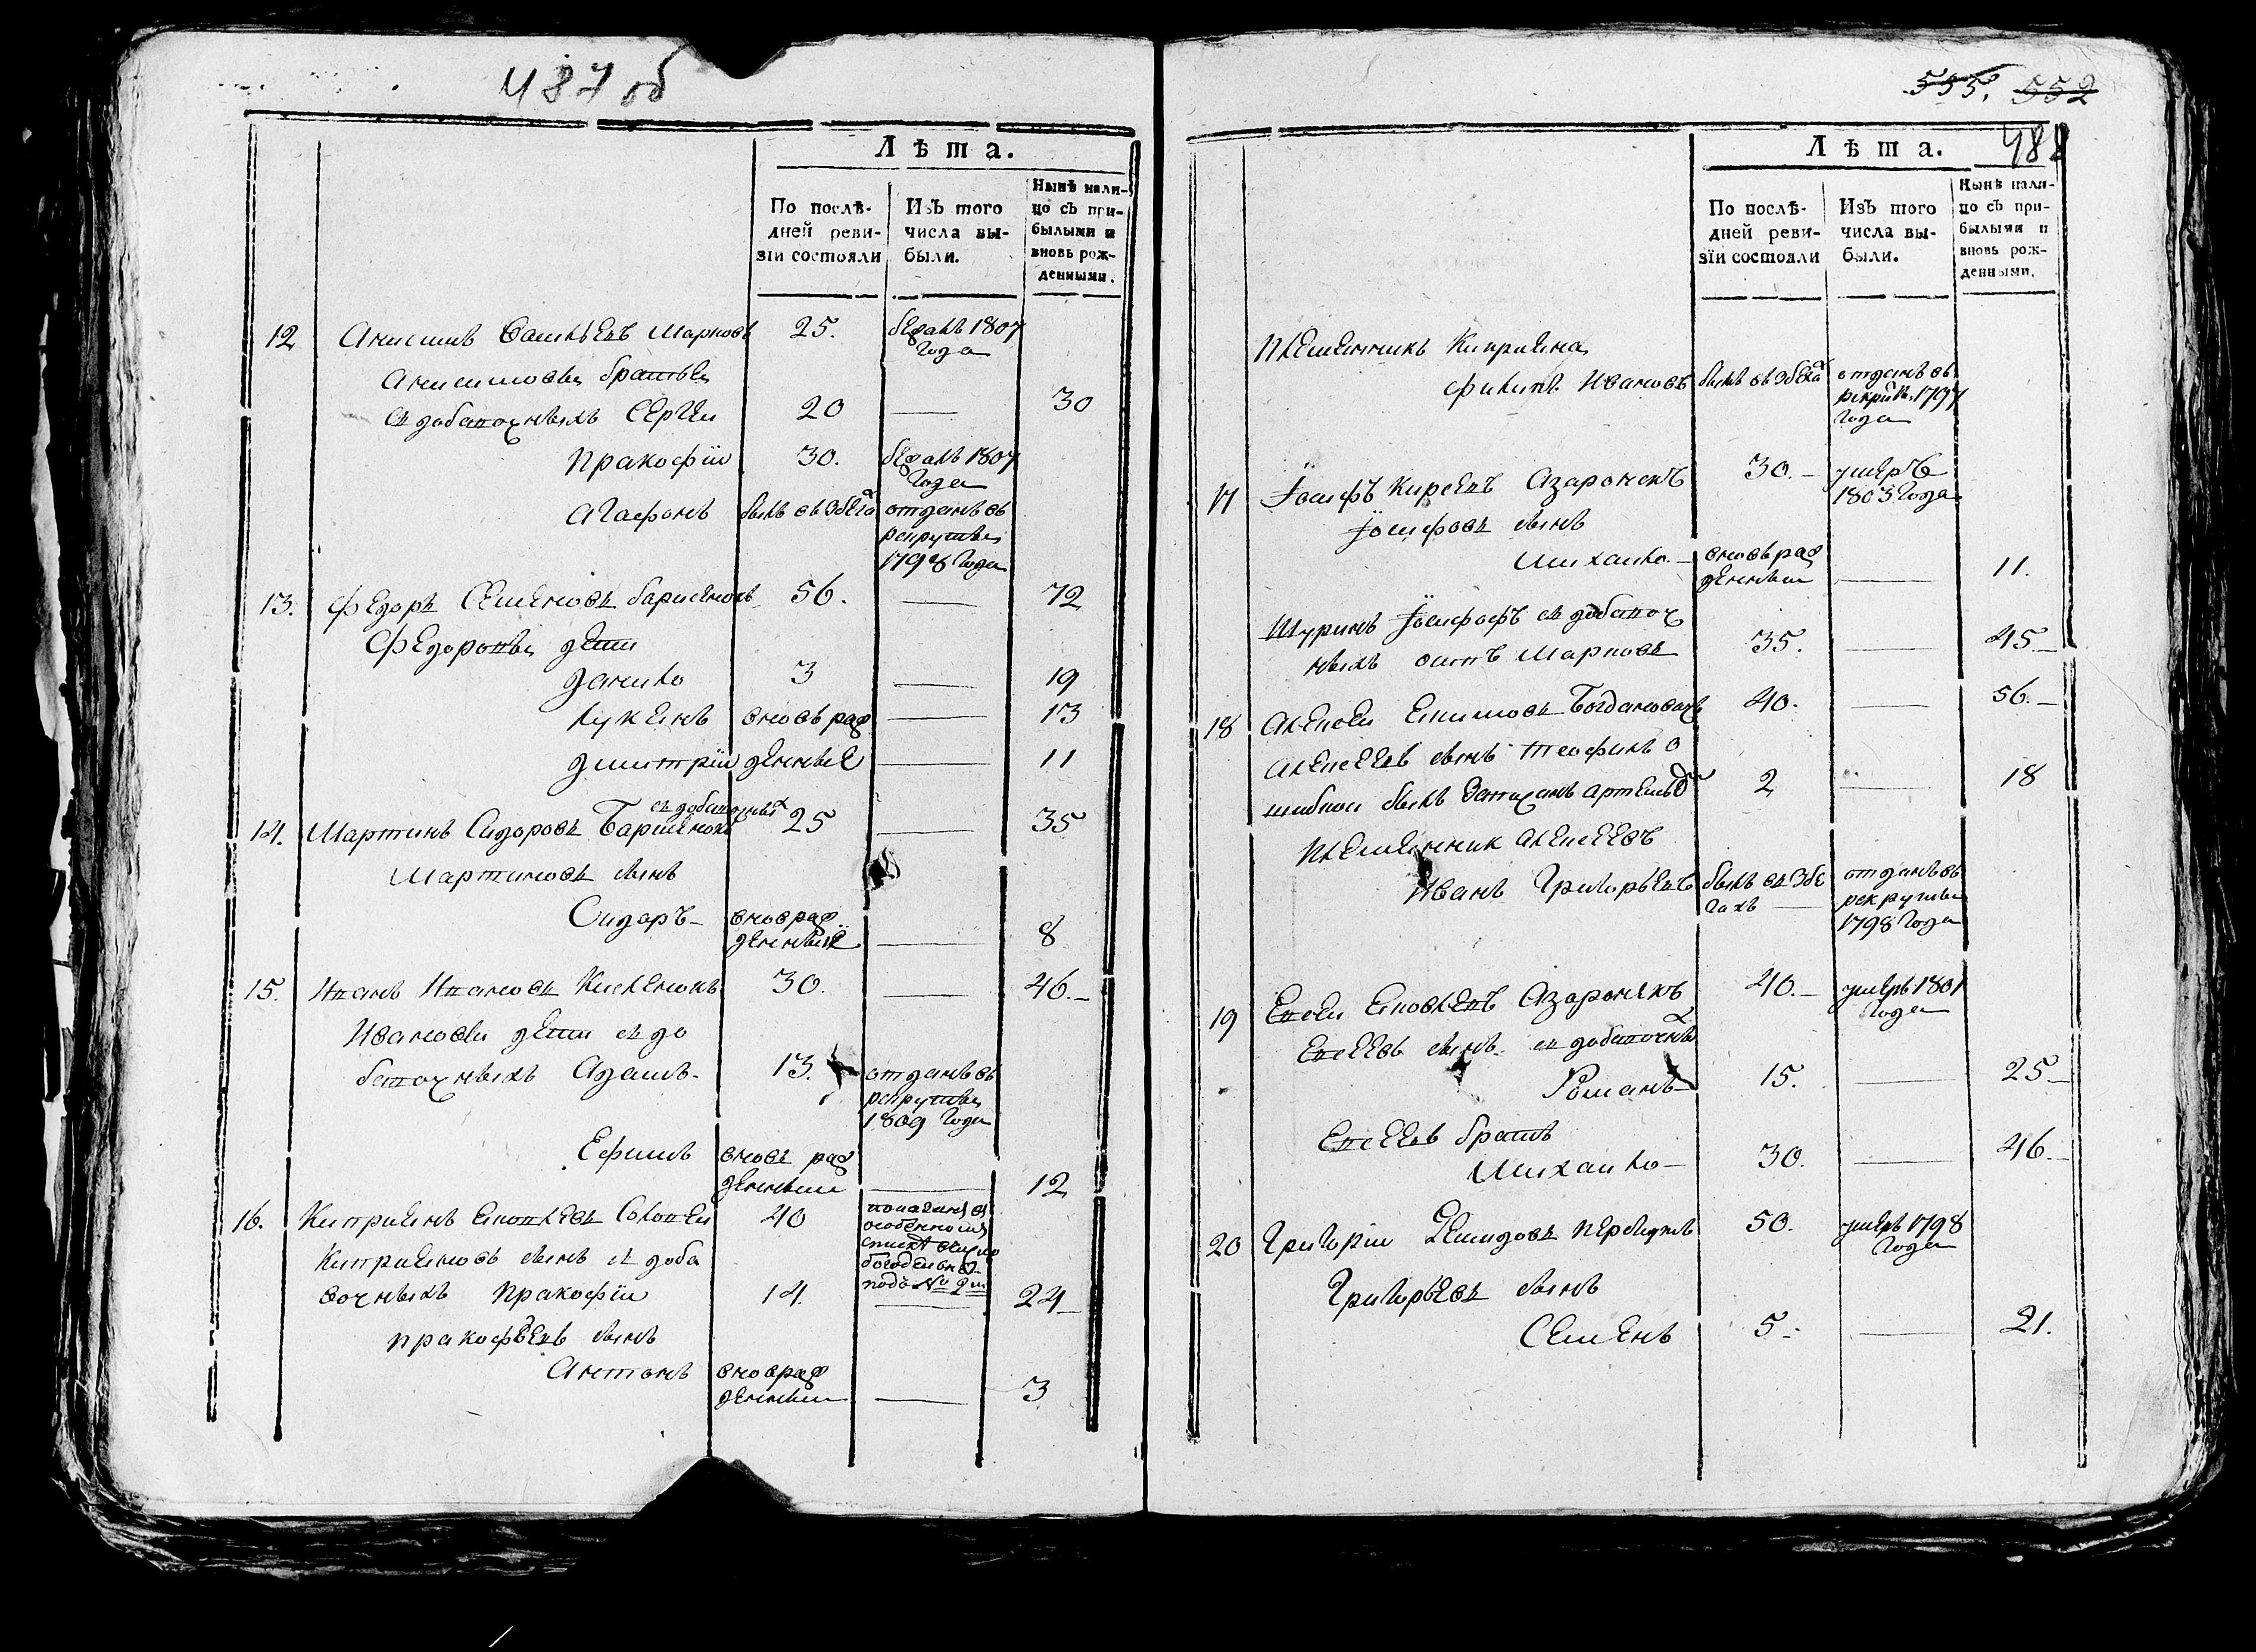 487 об
Лѣта.
По послѣдней ревизіи состояли
Изъ того числа выбыли.
Нынѣ налицо съ прибылыми и вновь рожденными.
12 Анисимъ Марковъ 25. бежалъ 1807 Года
Анисимовы братья
из добавочныхъ Сергеи 20 — 30
Пракофїи 30. бежалъ 1807 Года
Агафонъ былъ въ збегах отданъ въ рекруты 1798 Года
13. Федоръ Семеновъ Барисенокъ 56. — 72
Федоровы дети
Данило 3 — 19
Лукянъ вновь раж — 13
Дмитрїи денные — 11
14. Мартинъ Сидоровъ Барисенокъ из добавочных 25 — 35
Мартиновъ сынъ
Сидаръ — вновь раж денныи — 8
15. Иванъ Ивановъ Киселенокъ 30. — 46. —
Ивановы дети из до
бавочныхъ Адамъ - 13. отданъ въ рекруты 1809 Года
Ефимъ вновь раж денныи — 12
16. Киприянъ Саловеи 40 показанъ въ особенном списке под № 2м
Киприяновъ сынъ из доба
вочныхъ Пракофїи 14. — 24 —
Пракофьевъ сынъ
Антонъ вновь раж денныи — 3
555. 552
488
Лѣта.
По послѣдней ревизїи состояли
Изъ того числа выбыли.
Нынѣ налицо съ прибылыми и вновь рожденными.
Племянникъ Киприяна
Филипъ Ивановъ былъ въ збегах отданъ въ рекруты 1797 Года
17 Їосифъ Киреевъ Азаронекъ 30. — умеръ 1803 Года
Їосифовъ сынъ
Михаило — вновь раж денныи — 11.
Шуринъ Їосифофъ из добавоч
ныхъ Марковъ 35. — 45. —
18 Алексеи Екимовъ Богдановъ 40. — 56. —
Алексеевъ сынъ Теофилъ о
шибкои былъ записанъ 2 — 18
Племянник Алексеевъ
Иванъ Григорьевъ былъ въ збе гахъ отданъ въ рекруты 1798 Года
19 Евсеи Яковлевъ Азаронякъ 40. — умеръ 1801 Года
Евсеевъ сынъ из добавочных
Романъ — 15. — 25 —
Евсеевъ братъ
Михаило — 30. — 46. —
20 Григорїи Демидовъ 50. умеръ 1798 Года
Григорьевъ сынъ
Семенъ 5 - — 21.